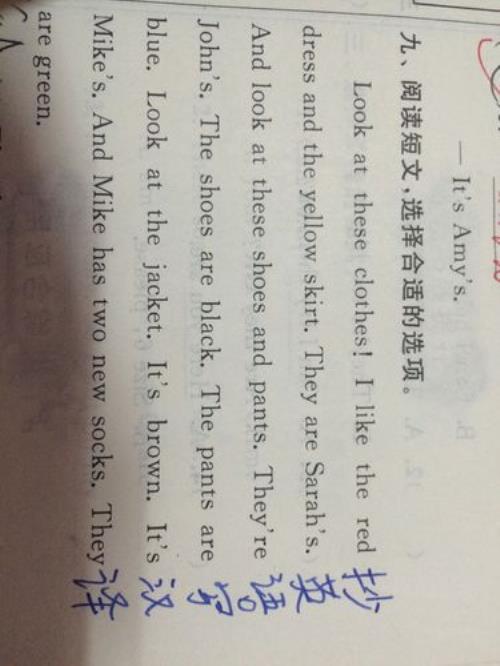 — It's Amy's.
九、阅读短文,选择合适的选项。
Look at these clothes! I like the red
dress and the yellow skirt. They are Sarah's.
And look at these shoes and pants. They're
John's. The shoes are black. The pants are
blue. Look at the jacket. It's brown. It's
Mike's. And Mike has two new socks. They
are green.
抄英语写汉译